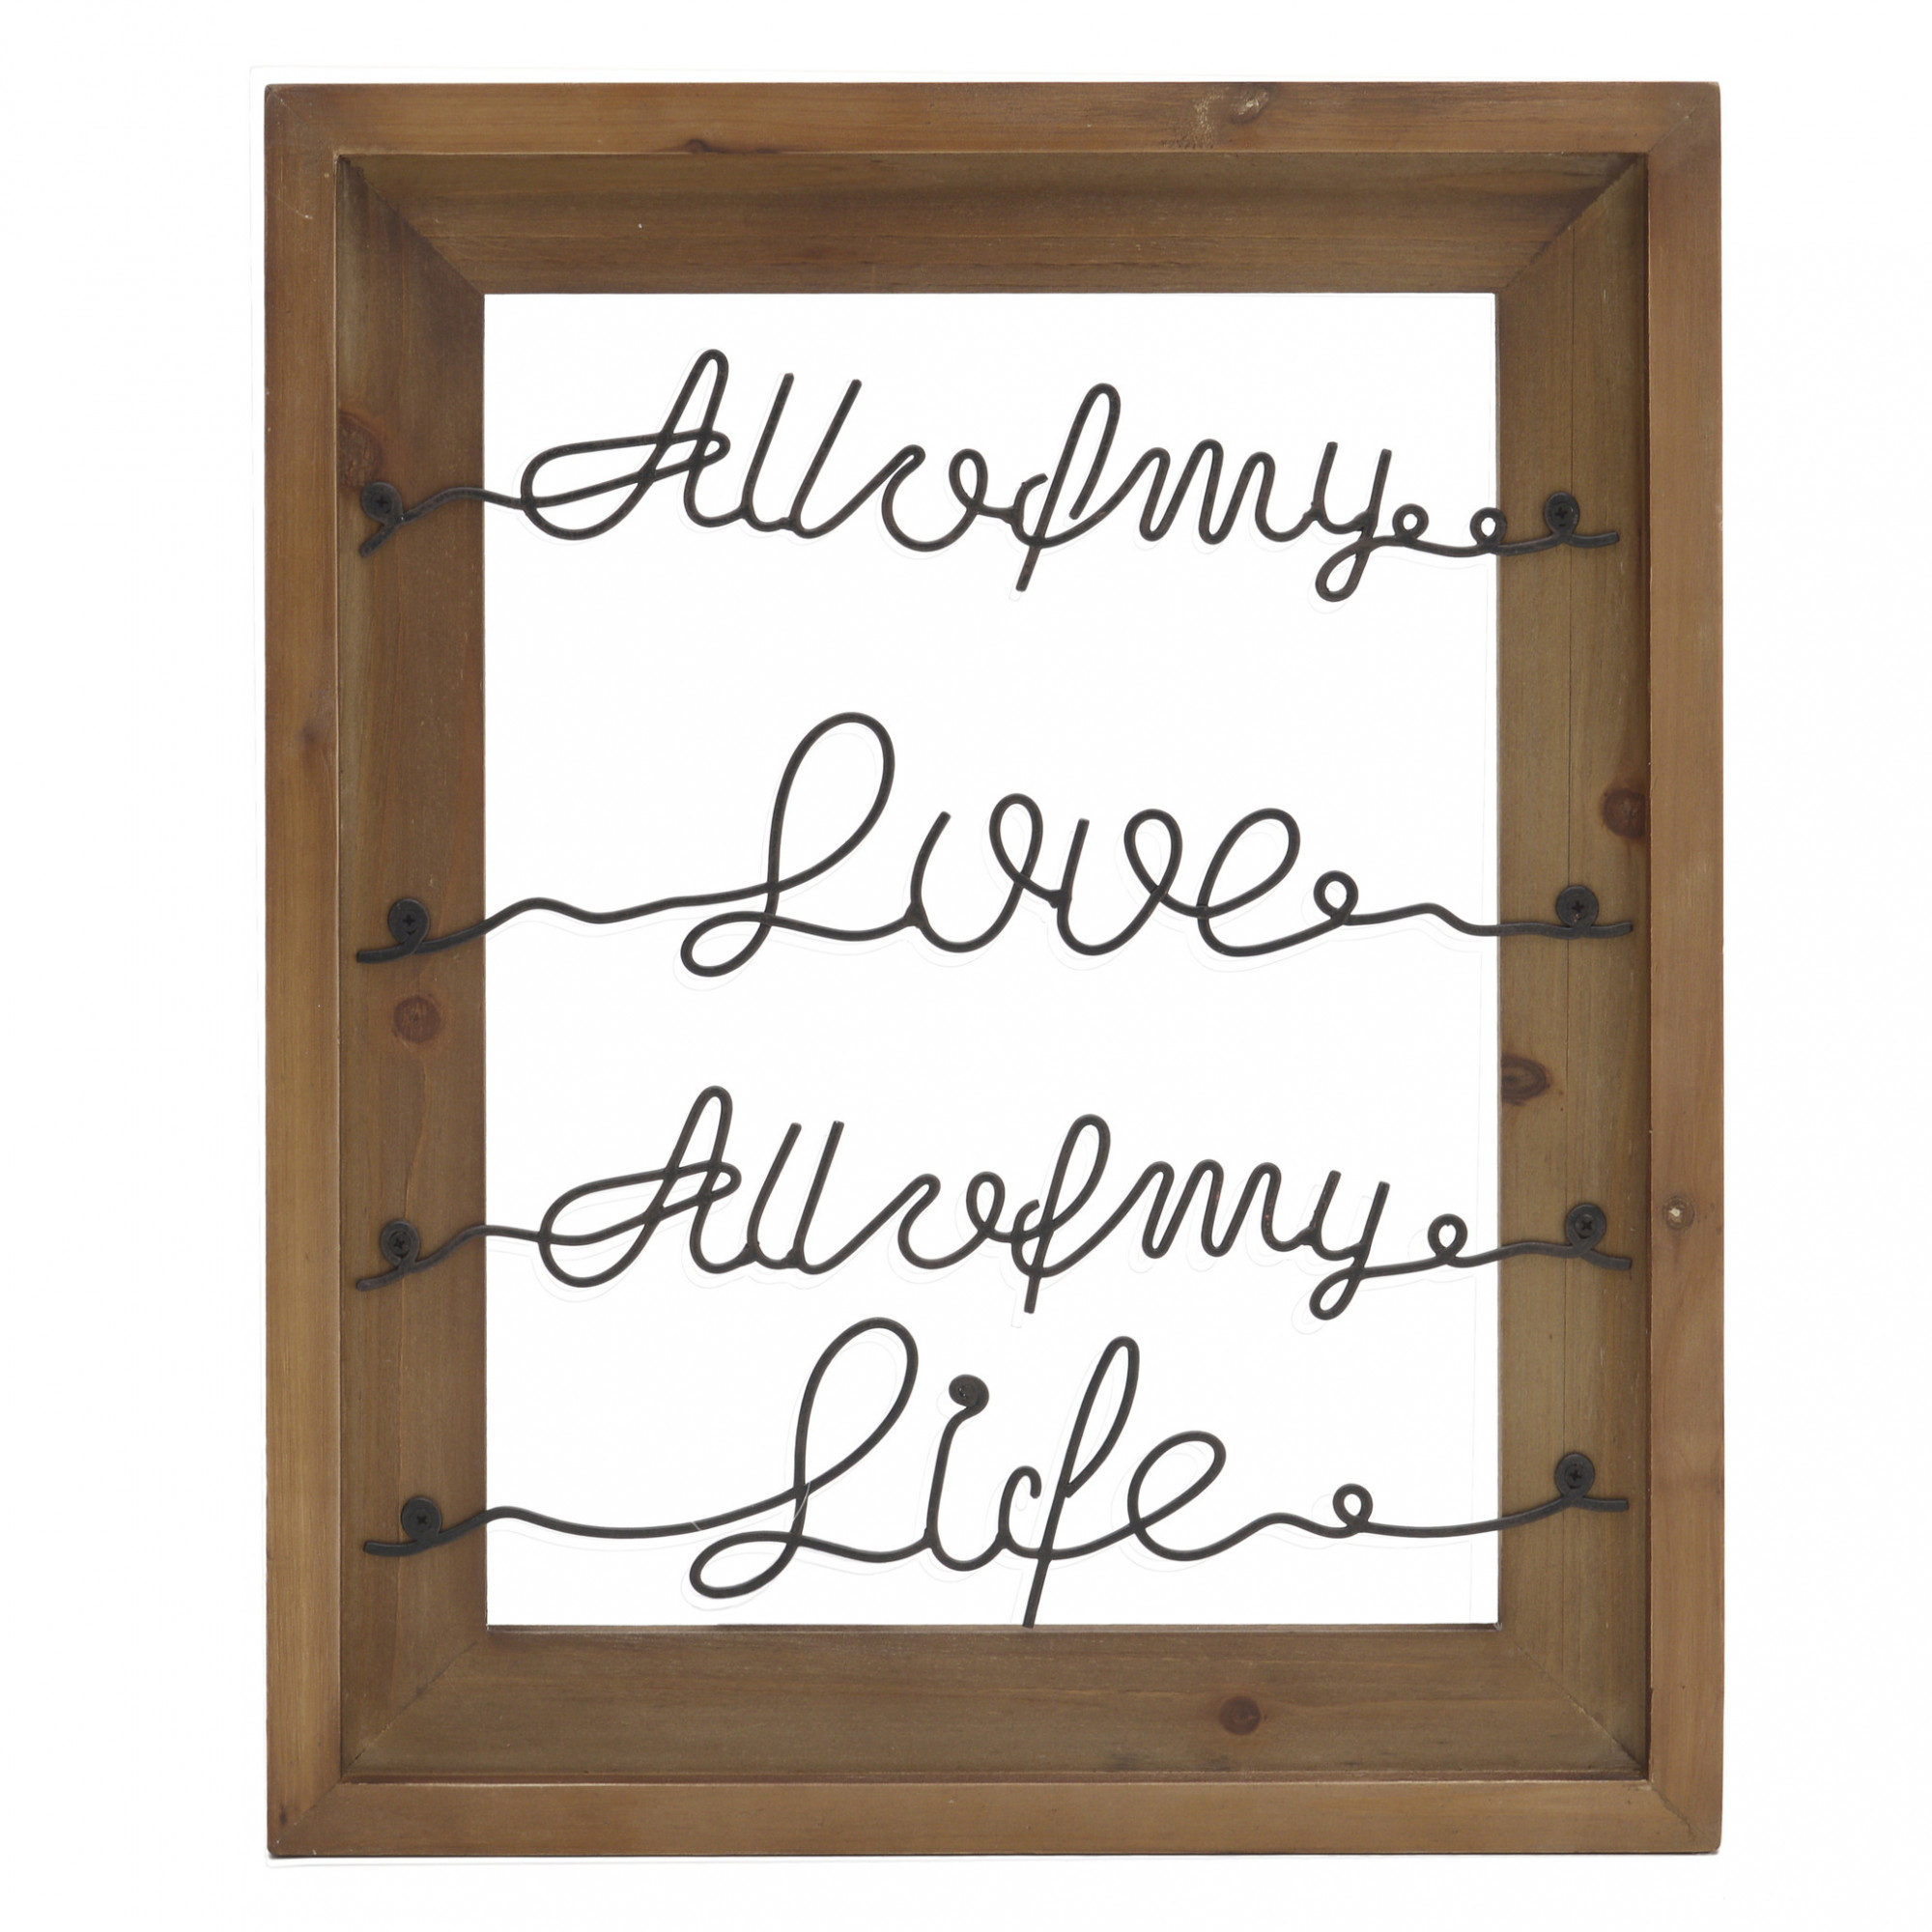 All of my
Love
All of my
Life